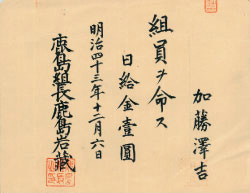 加藤澤吉
組員ヲ命ス
日給金壹圓
明治四十三年十二月六日
鹿島組長鹿島岩藏